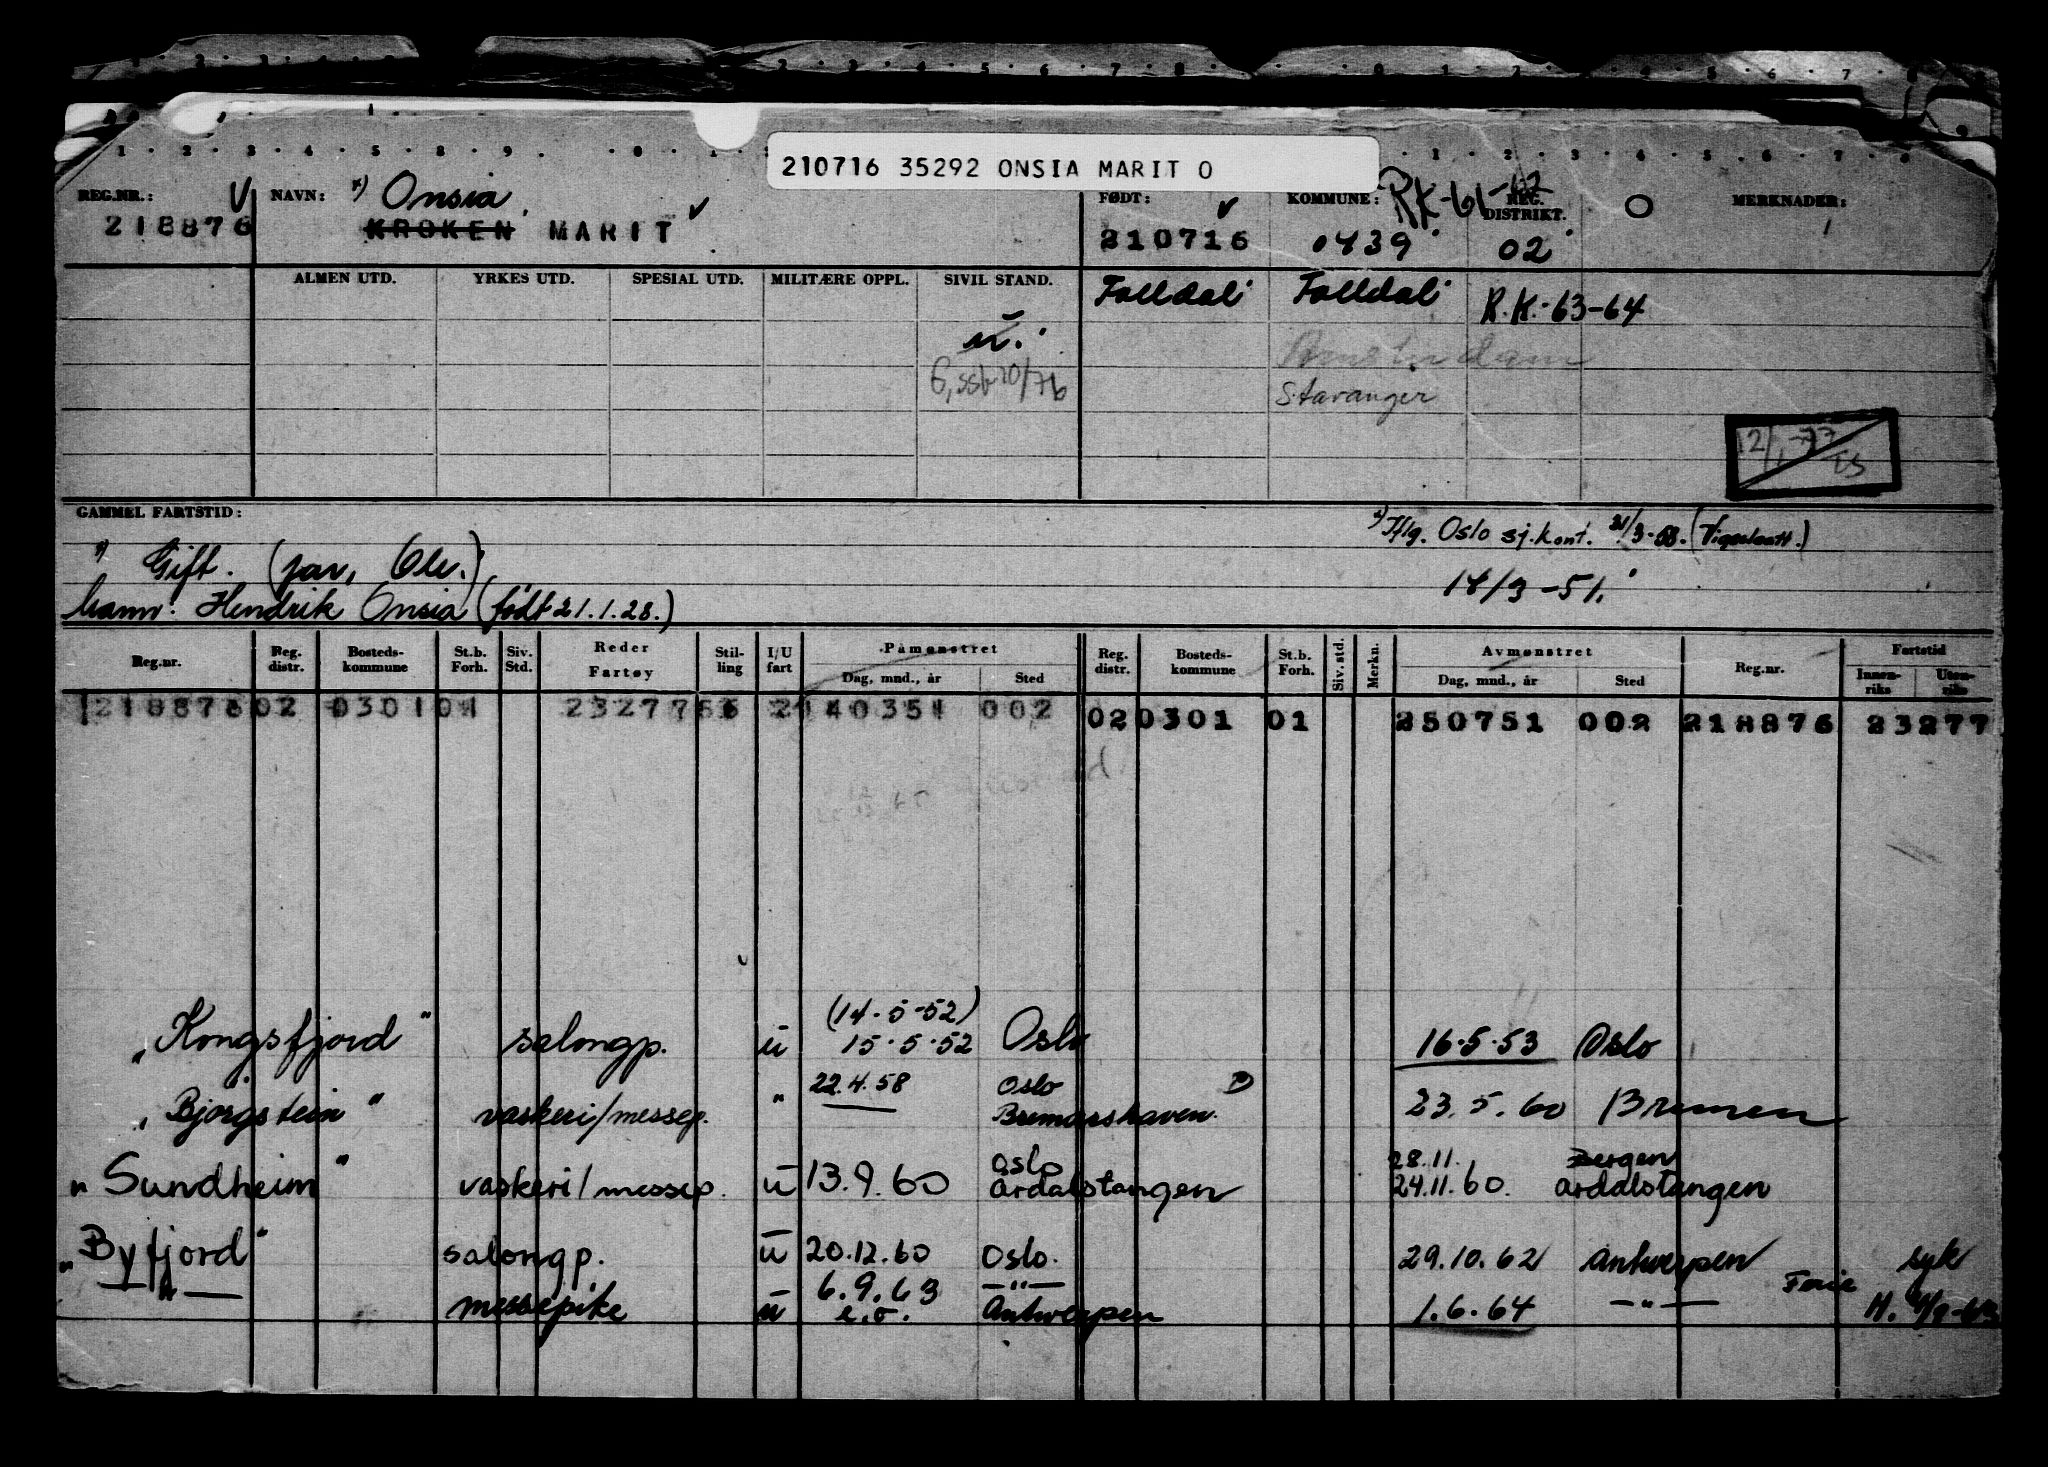 210716 35292 ONSIA MARIT O
REG.NR.: NAVN: x) Onsia FØDT: KOMMUNE: RK-61-62 REG. DISTRIKT. O MERKNADER:
218876 KROKEN MARIT 210716 0439 02
ALMEN UTD. YRKES UTD. SPESIAL UTD. MILITÆRE OPPL. SIVIL STAND. Folldal Folldal R.K.-63-64
u.
Amsterdam
Stavanger
12/1-77
GAMMEL FARTSTID: x) Iflg. Oslo sj.kont. 21/3-58.
x) Gift.
14/3-51.
Hendrik Onsia (født 21.1.28.)
Reg.nr. Reg. distr. Bosteds-kommune St.b. Forh. Siv. Std. Reder Fartøy Stil-ling I/U fart Påmønstret Dag, mnd., år Sted Reg. distr. Bosteds-kommune St.b. Forh. Siv. std. Merkn. Avmønstret Dag, mnd., år Sted Reg.nr. Fartstid Innen-riks Uten-riks
218876 02 0301 01 23277 66 2 140351 002 02 0301 01 250751 002 218876 23277
(14-5-52)
"Kongsfjord" salongp. u 15.5.52 Oslo 16.5.53 Oslo
22.4.58 Oslo
"Bjørgstein" vaskeri/messep. " Bremershaven. 23.5.60 Bremen
Oslo 28.11. Bergen
"Sundheim" vaskeri/messep. u 13.9.60 Årdalstangen 24.11.60. Årdalstangen
"Byfjord" salongp. u 20.12.60 Oslo. 29.10.62 Antwerpen syk
—"— 6.9.63 —"— Ferie
messepike u e.o. Antwerpen 1.6.64 —"—